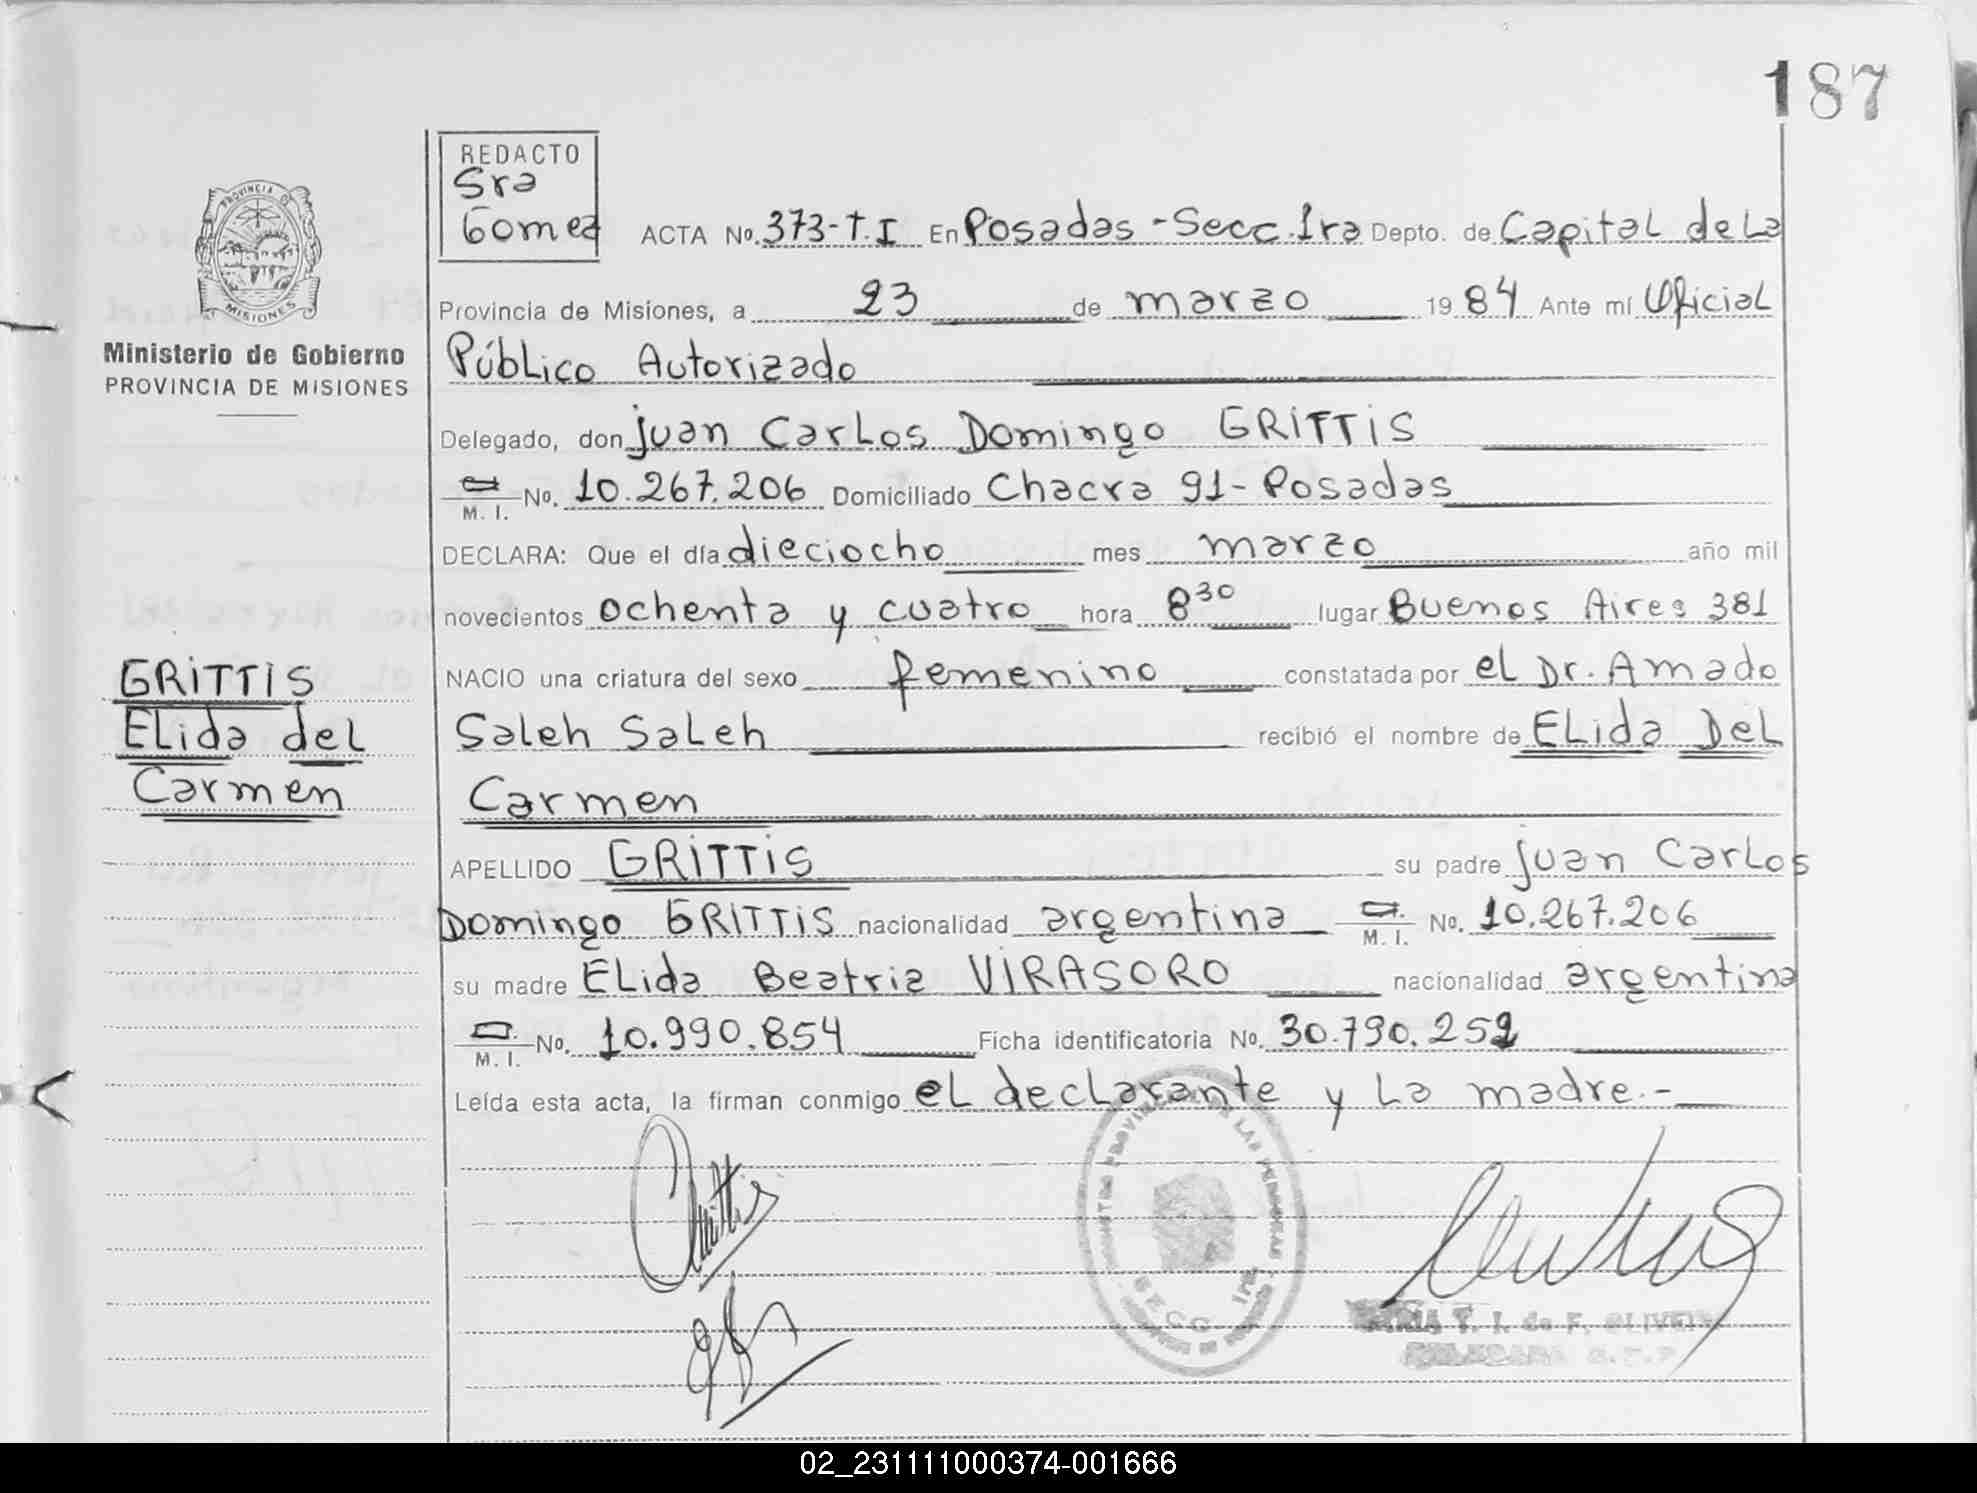 187
REDACTO
Sra
Gomez
ACTA No. 373-T.I En Posadas - Secc. 1ra Depto. de Capital de La
PROVINCIA DE
MISIONES
Provincia de Misiones, a 23 de marzo 1984 Ante mí Oficial
Ministerio de Gobierno
PROVINCIA DE MISIONES
Público Autorizado
Delegado, don Juan Carlos Domingo GRITTIS
M. I. No. 10.267.206 Domiciliado Chacra 91 - Posadas
DECLARA: Que el día dieciocho mes marzo año mil
novecientos ochenta y cuatro hora 8³⁰ lugar Buenos Aires 381
GRITTIS
Elida del
Carmen
NACIO una criatura del sexo femenino constatada por el Dr. Amado
Saleh Saleh recibió el nombre de Elida Del
Carmen
APELLIDO GRITTIS su padre Juan Carlos
Domingo GRITTIS nacionalidad argentina M. I. No. 10.267.206
su madre Elida Beatriz VIRASORO nacionalidad argentina
M. I. No. 10.990.854 Ficha identificatoria No. 30.790.252
Leída esta acta, la firman conmigo el declarante y La madre.-
Grittis
SECC. 1RA.
T. I. de F. OLIVEIRA
02_231111000374-001666